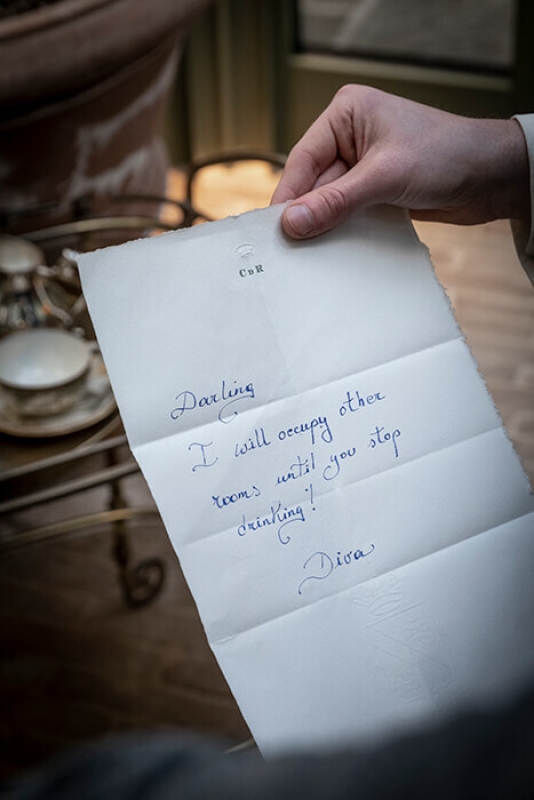 CDR
Darling
I will occupy other
rooms until you stop
drinking!
Diva